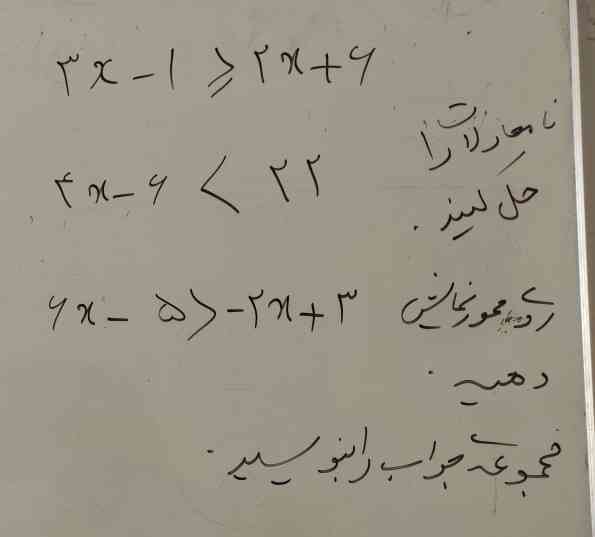 ۳x - ۱ ≥ ۲x + ۶
نامعادلات را
حل کنید.
۴x - ۶ < ۲۲
۶x - ۵ > -۲x + ۳
روی محور نمایش
دهید.
مجموعه جواب را بنویسید.